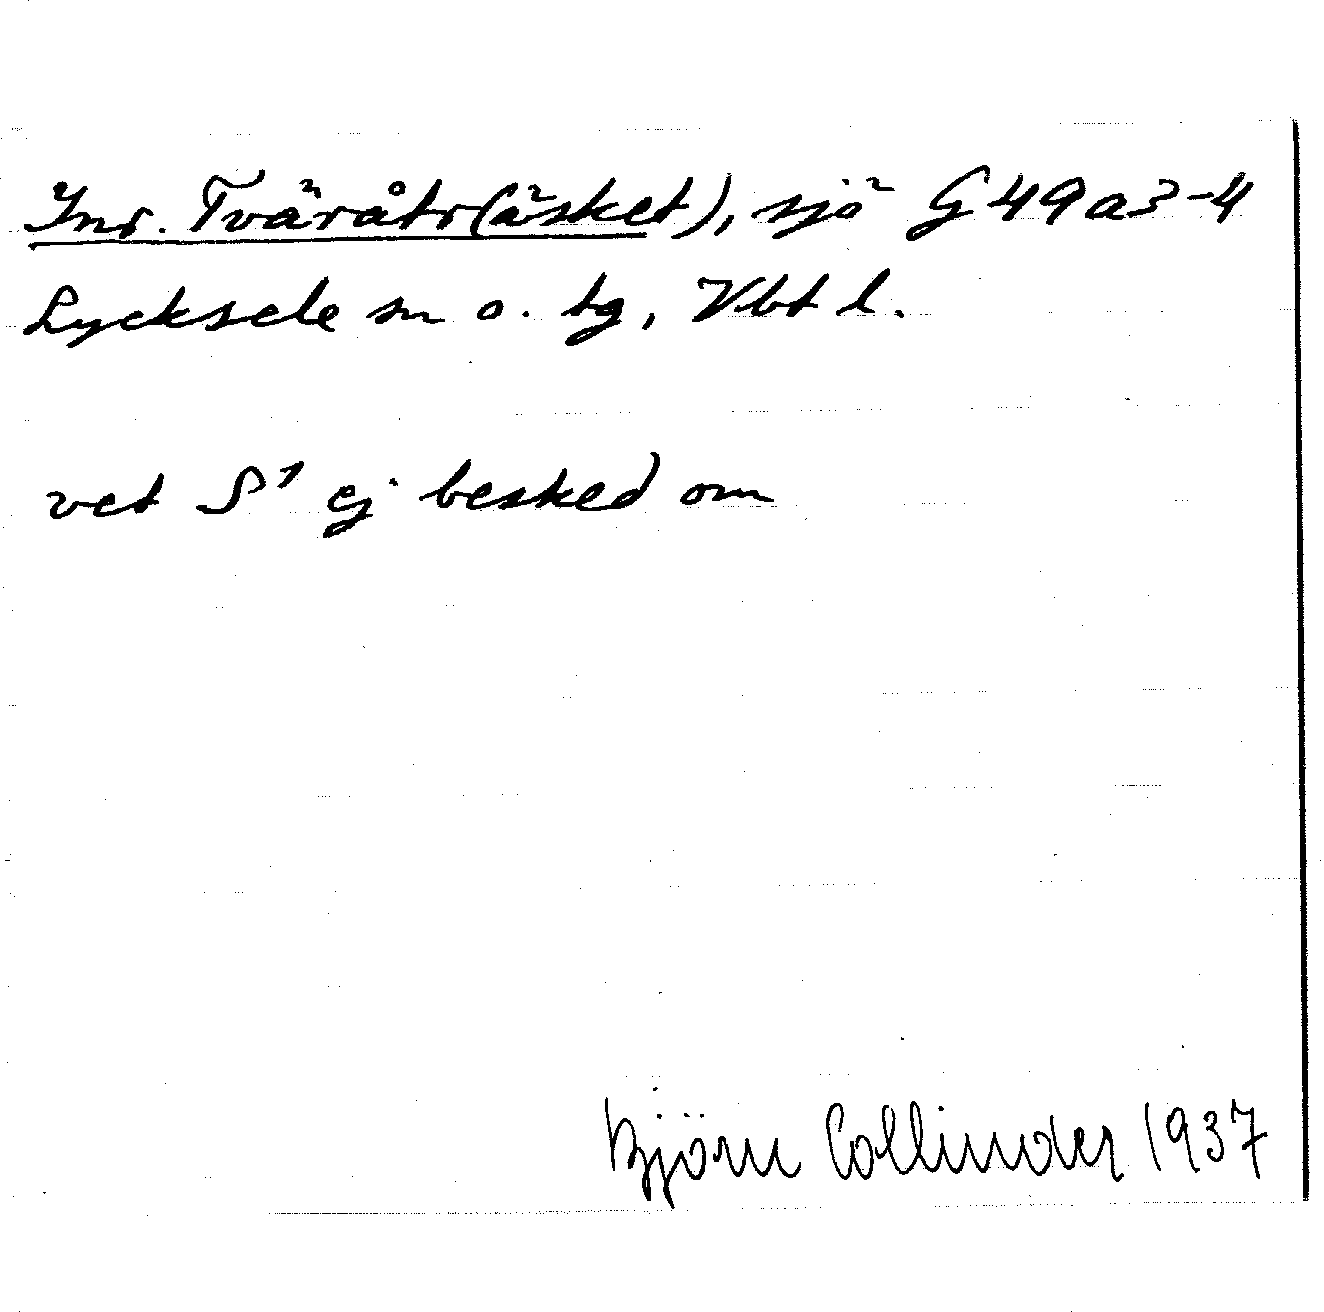 Inr. Tväråtr(äsket), sjö G 49 a 3-4
Lycksele sn o. tg, Vbt l.
vet S¹ ej besked om
Björn Collinder 1937